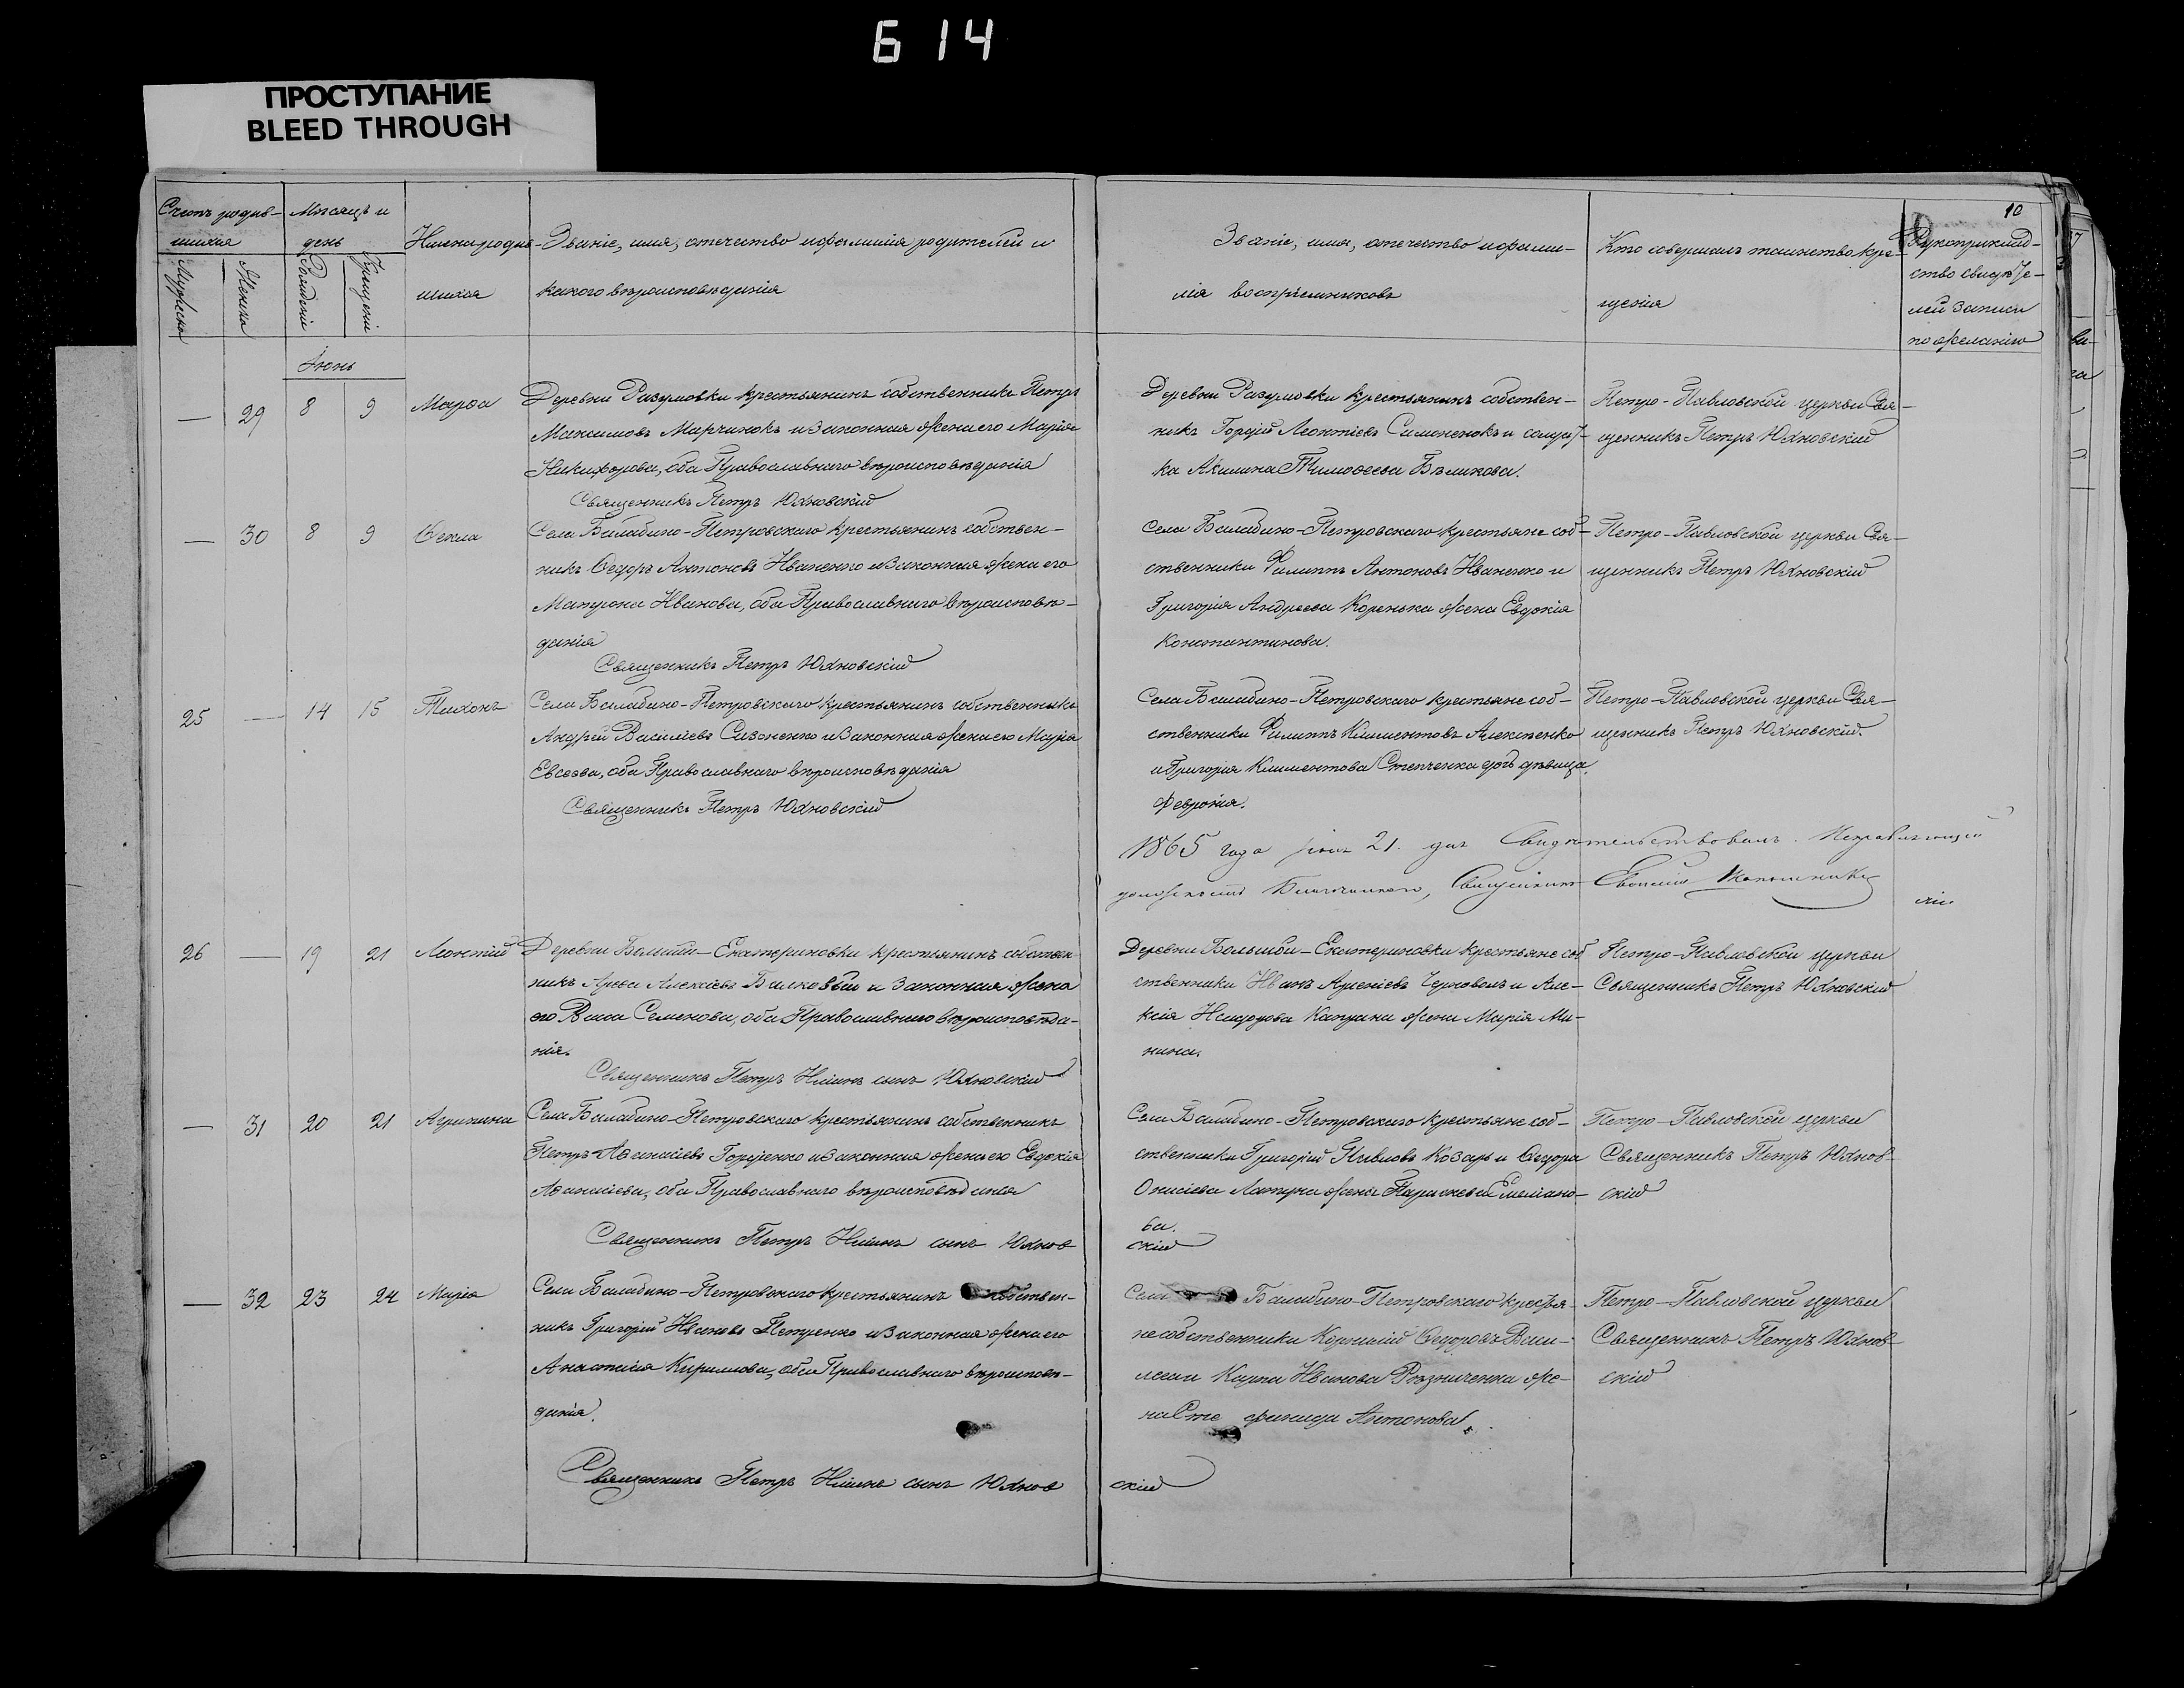 614
ПРОСТУПАНИЕ
BLEED THROUGH
10
Счетъ родив-
шихся
Мужска
Женска
Мѣсяцъ и
день
Рожденія
Крещенія
Имена родив-
шихся
Званіе, имя, отечество и фамилія родителей и
какого вѣроисповѣданія
Званіе, имя, отечество и фами-
лія воспріемниковъ
Кто совершалъ таинство кре-
щенія
Рукоприклад-
ство свидѣте-
лей записи
по желанію
Іюнь
— 29 8 9 Марѳа
Деревни Разумовки крестьянинъ собственникъ Петръ
Максимовъ Марчинокъ и законная жена его Марія
Никифорова, оба Православнаго вѣроисповѣданія
Священникъ Петръ Юхновскій
Деревни Разумовки крестьянинъ собствен-
никъ Гордій Леонтіевъ Симоненокъ и солдат-
ка Акилина Тимоѳеева Бѣликова.
Петро-Павловской церкви Свя-
щенникъ Петръ Юхновскій
— 30 8 9 Ѳекла
Села Балабино-Петровскаго крестьянинъ собствен-
никъ Ѳедоръ Антоновъ Иваненко и законная жена его
Матрона Иванова, оба Православнаго вѣроисповѣ-
данія
Священникъ Петръ Юхновскій
Села Балабино-Петровскаго крестьяне соб-
ственники Филиппъ Антоновъ Иваненко и
Григорія Андреева Коренька жена Евдокія
Константинова.
Петро-Павловской церкви Свя-
щенникъ Петръ Юхновскій
25 — 14 15 Тихонъ
Села Балабино-Петровскаго крестьянинъ собственникъ
Андрей Василіевъ Сизоненко и законная жена его Марія
Евсеева, оба Православнаго вѣроисповѣданія
Священникъ Петръ Юхновскій
Села Балабино-Петровскаго крестьяне соб-
ственники Филиппъ Климентовъ Алексѣенко
и Григорія Климентова Степченка дочь дѣвица
Феврония.
Петро-Павловской церкви Свя-
щенникъ Петръ Юхновскій.
1865 года іюня 21. дня Свидѣтельствовалъ. Исправляющій
должность Благочиннаго, Священникъ Евѳимій
26 — 19 21 Леонтій
Деревни Больши-Екатериновки крестьянинъ собствен
никъ Алексіевъ и законная жена
его Васса Семенова, оба Православнаго вѣроисповѣда-
нія.
Священникъ Петръ Іліинъ сынъ Юхновскій
Деревни Большой-Екатериновки крестьяне соб
ственники Иванъ Арсеніевъ Черноволъ и Але-
ксія Исидорова Капрана жена Марія Ми-
нина.
Петро-Павловской церкви
Священникъ Петръ Юхновскій
— 31 20 21 Агрипина
Села Балабино-Петровскаго крестьянинъ собственникъ
Петръ Аѳанасіевъ Гордіенко и законная жена его Евдокія
Аѳанасіева, оба Православнаго вѣроисповѣданія
Священникъ Петръ Іліинъ сынъ Юхнов
скій
Села Балабино-Петровскаго крестьяне соб-
ственники Григорій Павловъ Козарь и Ѳедора
Онисіева Латуна жена Параскева Емеліано-
ва.
Петро-Павловской церкви
Священникъ Петръ Юхнов-
скій
— 32 23 24 Марія
Села Балабино-Петровскаго крестьянинъ собствен-
никъ Григорій Ивановъ Петренко и законная жена его
Анастасія Кирилова, оба Православнаго вѣроисповѣ-
данія.
Священникъ Петръ Іліинъ сынъ Юхнов
скій
Села Балабино-Петровскаго крестья-
не собственники Корнилій Ѳедоровъ
Карпа Иванова Рѣзниченка же-
на Сте фанида Антонова.
Петро-Павловской церкви
Священникъ Петръ Юхнов-
скій